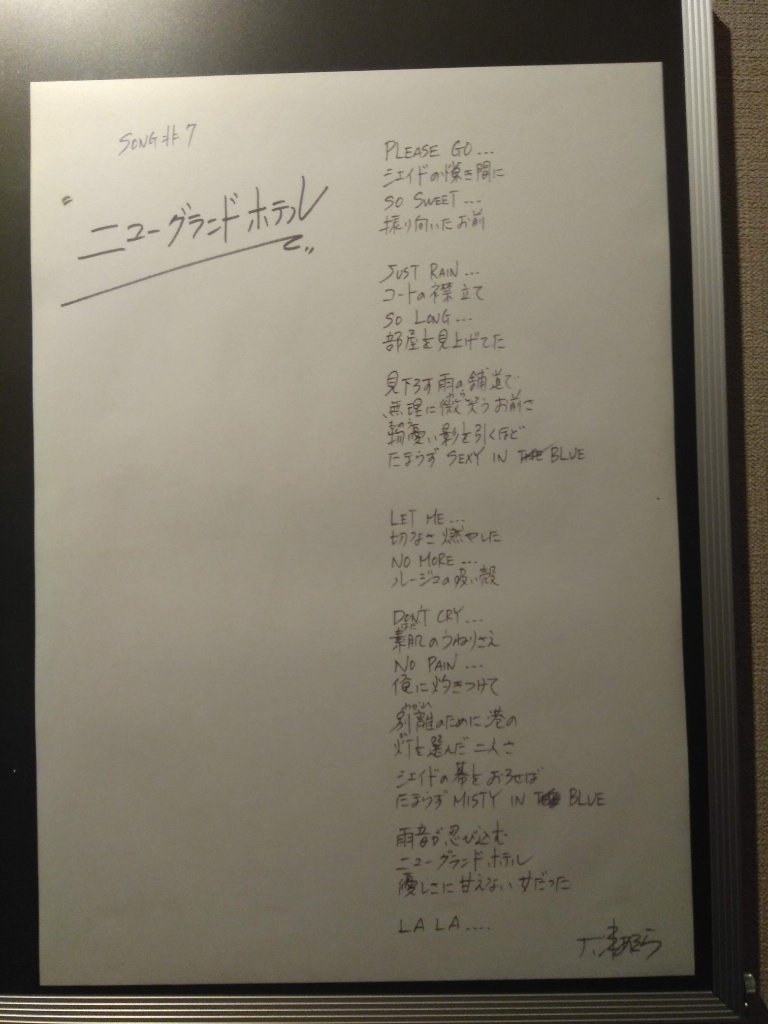 SONG#7
"ニューグランドホテル"
PLEASE GO...
シエイドの隙き間に
SO SWEET...
振り向いたお前
JUST RAIN...
コートの襟立て
SO LONG...
部屋を見上げてた
見下ろす雨の舗道で
無理に微笑うお前さ
憂い影を引くほど
たまらず SEXY IN THE BLUE
LET ME...
切なさ燃やした
NO MORE...
ルージュの吸い殻
DON'T CRY...
素肌のうねりさえ
NO PAIN...
俺に灼きつけて
別離のために港の
灯を選んだ二人さ
シエイドの幕をおろせば
たまらず MISTY IN THE BLUE
雨音が忍び込む
ニューグランドホテル
優しさに甘えない女だった
LA LA....